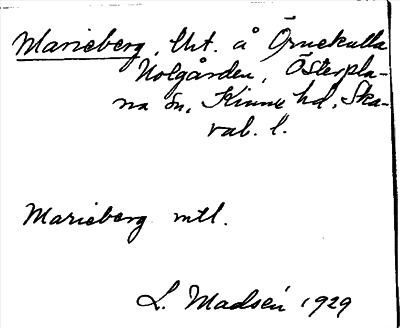 Marieberg, Uht. å Örnekulla
Nolgården, Österpla-
na sn, Kinne hd, Ska-
rab. l.
Marieberg mtl.
L. Madsén 1929